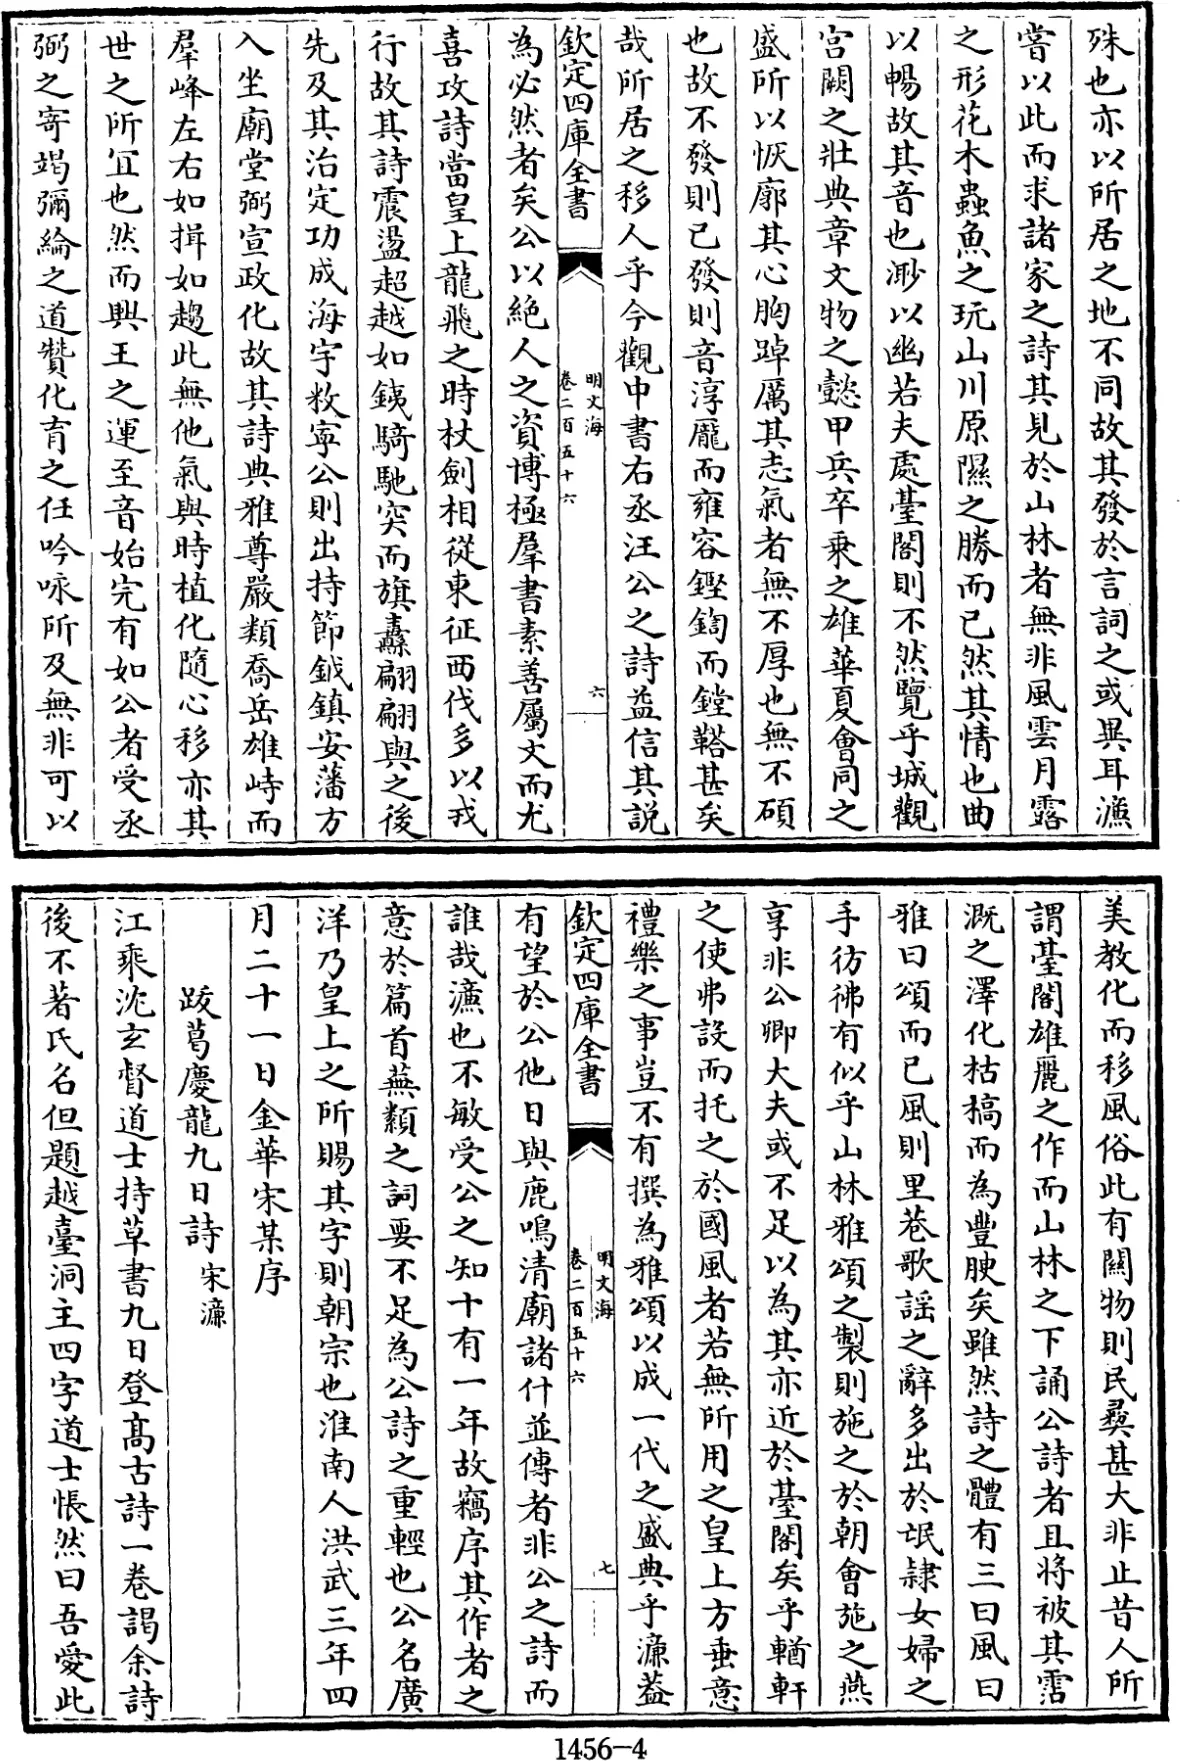 殊也亦以所居之地不同故其發於言詞之或異耳濂
嘗以此而求諸家之詩其見於山林者無非風雲月露
之形花木蟲魚之玩山川原隰之勝而已然其情也曲
以暢故其音也渺以幽若夫處臺閣則不然覽乎城觀
宫闕之壯典章文物之懿甲兵卒乗之雄華夏會同之
盛所以恢廓其心胸踔厲其志氣者無不厚也無不碩
也故不發則已發則音淳龎而雍容鏗鍧而鏜鞳甚矣
哉所居之移人乎今觀中書右丞汪公之詩益信其說
欽定四庫全書
明文海
卷二百五十六
六
為必然者矣公以絶人之資博極羣書素善屬文而尤
喜攻詩當皇上龍飛之時杖劍相從東征西伐多以戎
行故其詩震盪超越如鐵騎馳突而旗纛翩翩與之後
先及其治定功成海宇敉寧公則出持節鉞鎮安藩方
入坐廟堂弼宣政化故其詩典雅尊嚴類喬岳雄峙而
羣峰左右如揖如趨此無他氣與時植化隨心移亦其
世之所宜也然而興王之運至音始完有如公者受丞
弼之寄竭彌綸之道贊化育之任吟咏所及無非可以
美教化而移風俗此有關物則民彞甚大非止昔人所
謂臺閣雄麗之作而山林之下誦公詩者且將被其霑
溉之澤化枯槁而為豐腴矣雖然詩之體有三曰風曰
雅曰頌而已風則里巷歌謡之辭多出於氓隸女婦之
手彷彿有似乎山林雅頌之製則施之於朝會施之燕
享非公卿大夫或不足以為其亦近於臺閣矣乎輶軒
之使弗設而托之於國風者若無所用之皇上方垂意
禮樂之事豈不有撰為雅頌以成一代之盛典乎濂葢
欽定四庫全書
明文海
卷二百五十六
七
有望於公他日與鹿鳴清廟諸什並傳者非公之詩而
誰哉濂也不敏受公之知十有一年故竊序其作者之
意於篇首蕪纇之詞要不足為公詩之重輕也公名廣
洋乃皇上之所賜其字則朝宗也淮南人洪武三年四
月二十一日金華宋某序
跋葛慶龍九日詩 宋濂
江乘沈玄督道士持草書九日登髙古詩一卷謁余詩
後不著氏名但題越臺洞主四字道士悵然曰吾愛此
1456-4